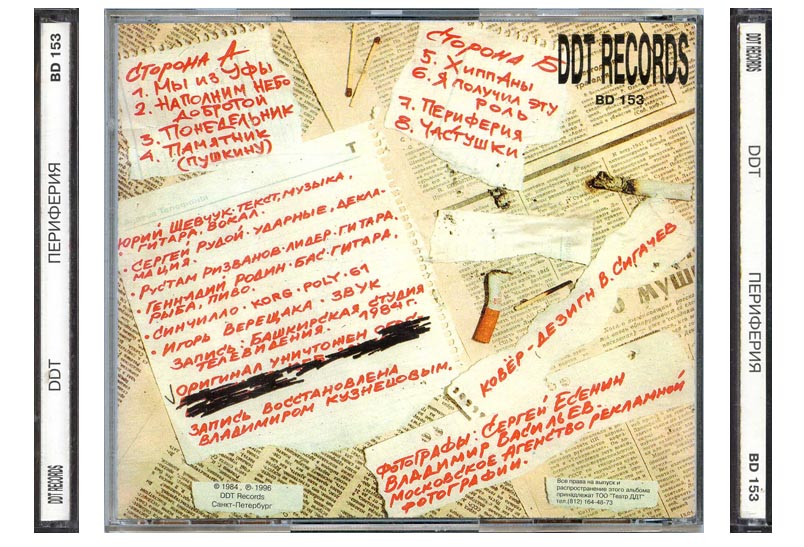 BD 153
ПЕРИФЕРИЯ
DDT
DDT RECORDS
СТОРОНА А
1. МЫ ИЗ УФЫ
2. НАПОЛНИМ НЕБО
ДОБРОТОЙ
3. ПОНЕДЕЛЬНИК
4. ПАМЯТНИК
(ПУШКИНУ)
СТОРОНА Б
5. ХИППАНЫ
6. Я ПОЛУЧИЛ ЭТУ
РОЛЬ
7. ПЕРИФЕРИЯ
8. ЧАСТУШКИ
DDT RECORDS
BD 153
ЮРИЙ ШЕВЧУК. ТЕКСТ, МУЗЫКА,
ГИТАРА, ВОКАЛ.
• СЕРГЕЙ РУДОЙ • УДАРНЫЕ, ДЕКЛА-
МАЦИЯ.
• РУСТАМ РИЗВАНОВ • ЛИДЕР • ГИТАРА.
• ГЕННАДИЙ РОДИН • БАС • ГИТАРА,
РЫБА, ПИВО.
• СИНЧИЛЛО • KORG • POLY • 61
• ИГОРЬ ВЕРЕЩАКА • ЗВУК
ЗАПИСЬ • БАШКИРСКАЯ СТУДИЯ
ТЕЛЕВИДЕНИЯ. 1984 г.
ОРИГИНАЛ УНИЧТОЖЕН
ЗАПИСЬ ВОССТАНОВЛЕНА
ВЛАДИМИРОМ КУЗНЕЦОВЫМ.
КОВЁР - ДЕЗИГН В. СИГАЧЕВ
ФОТОГРАФЫ • СЕРГЕЙ ЕСЕНИН
ВЛАДИМИР ВАСИЛЬЕВ.
МОСКОВСКОЕ АГЕНСТВО РЕКЛАМНОЙ
ФОТОГРАФИИ.
© 1984, ℗ 1996
DDT Records
Санкт-Петербург
Все права на выпуск и
распространение этого альбома
принадлежат ТОО "Театр ДДТ"
тел.(812) 164-48-73
DDT RECORDS
DDT
ПЕРИФЕРИЯ
BD 153